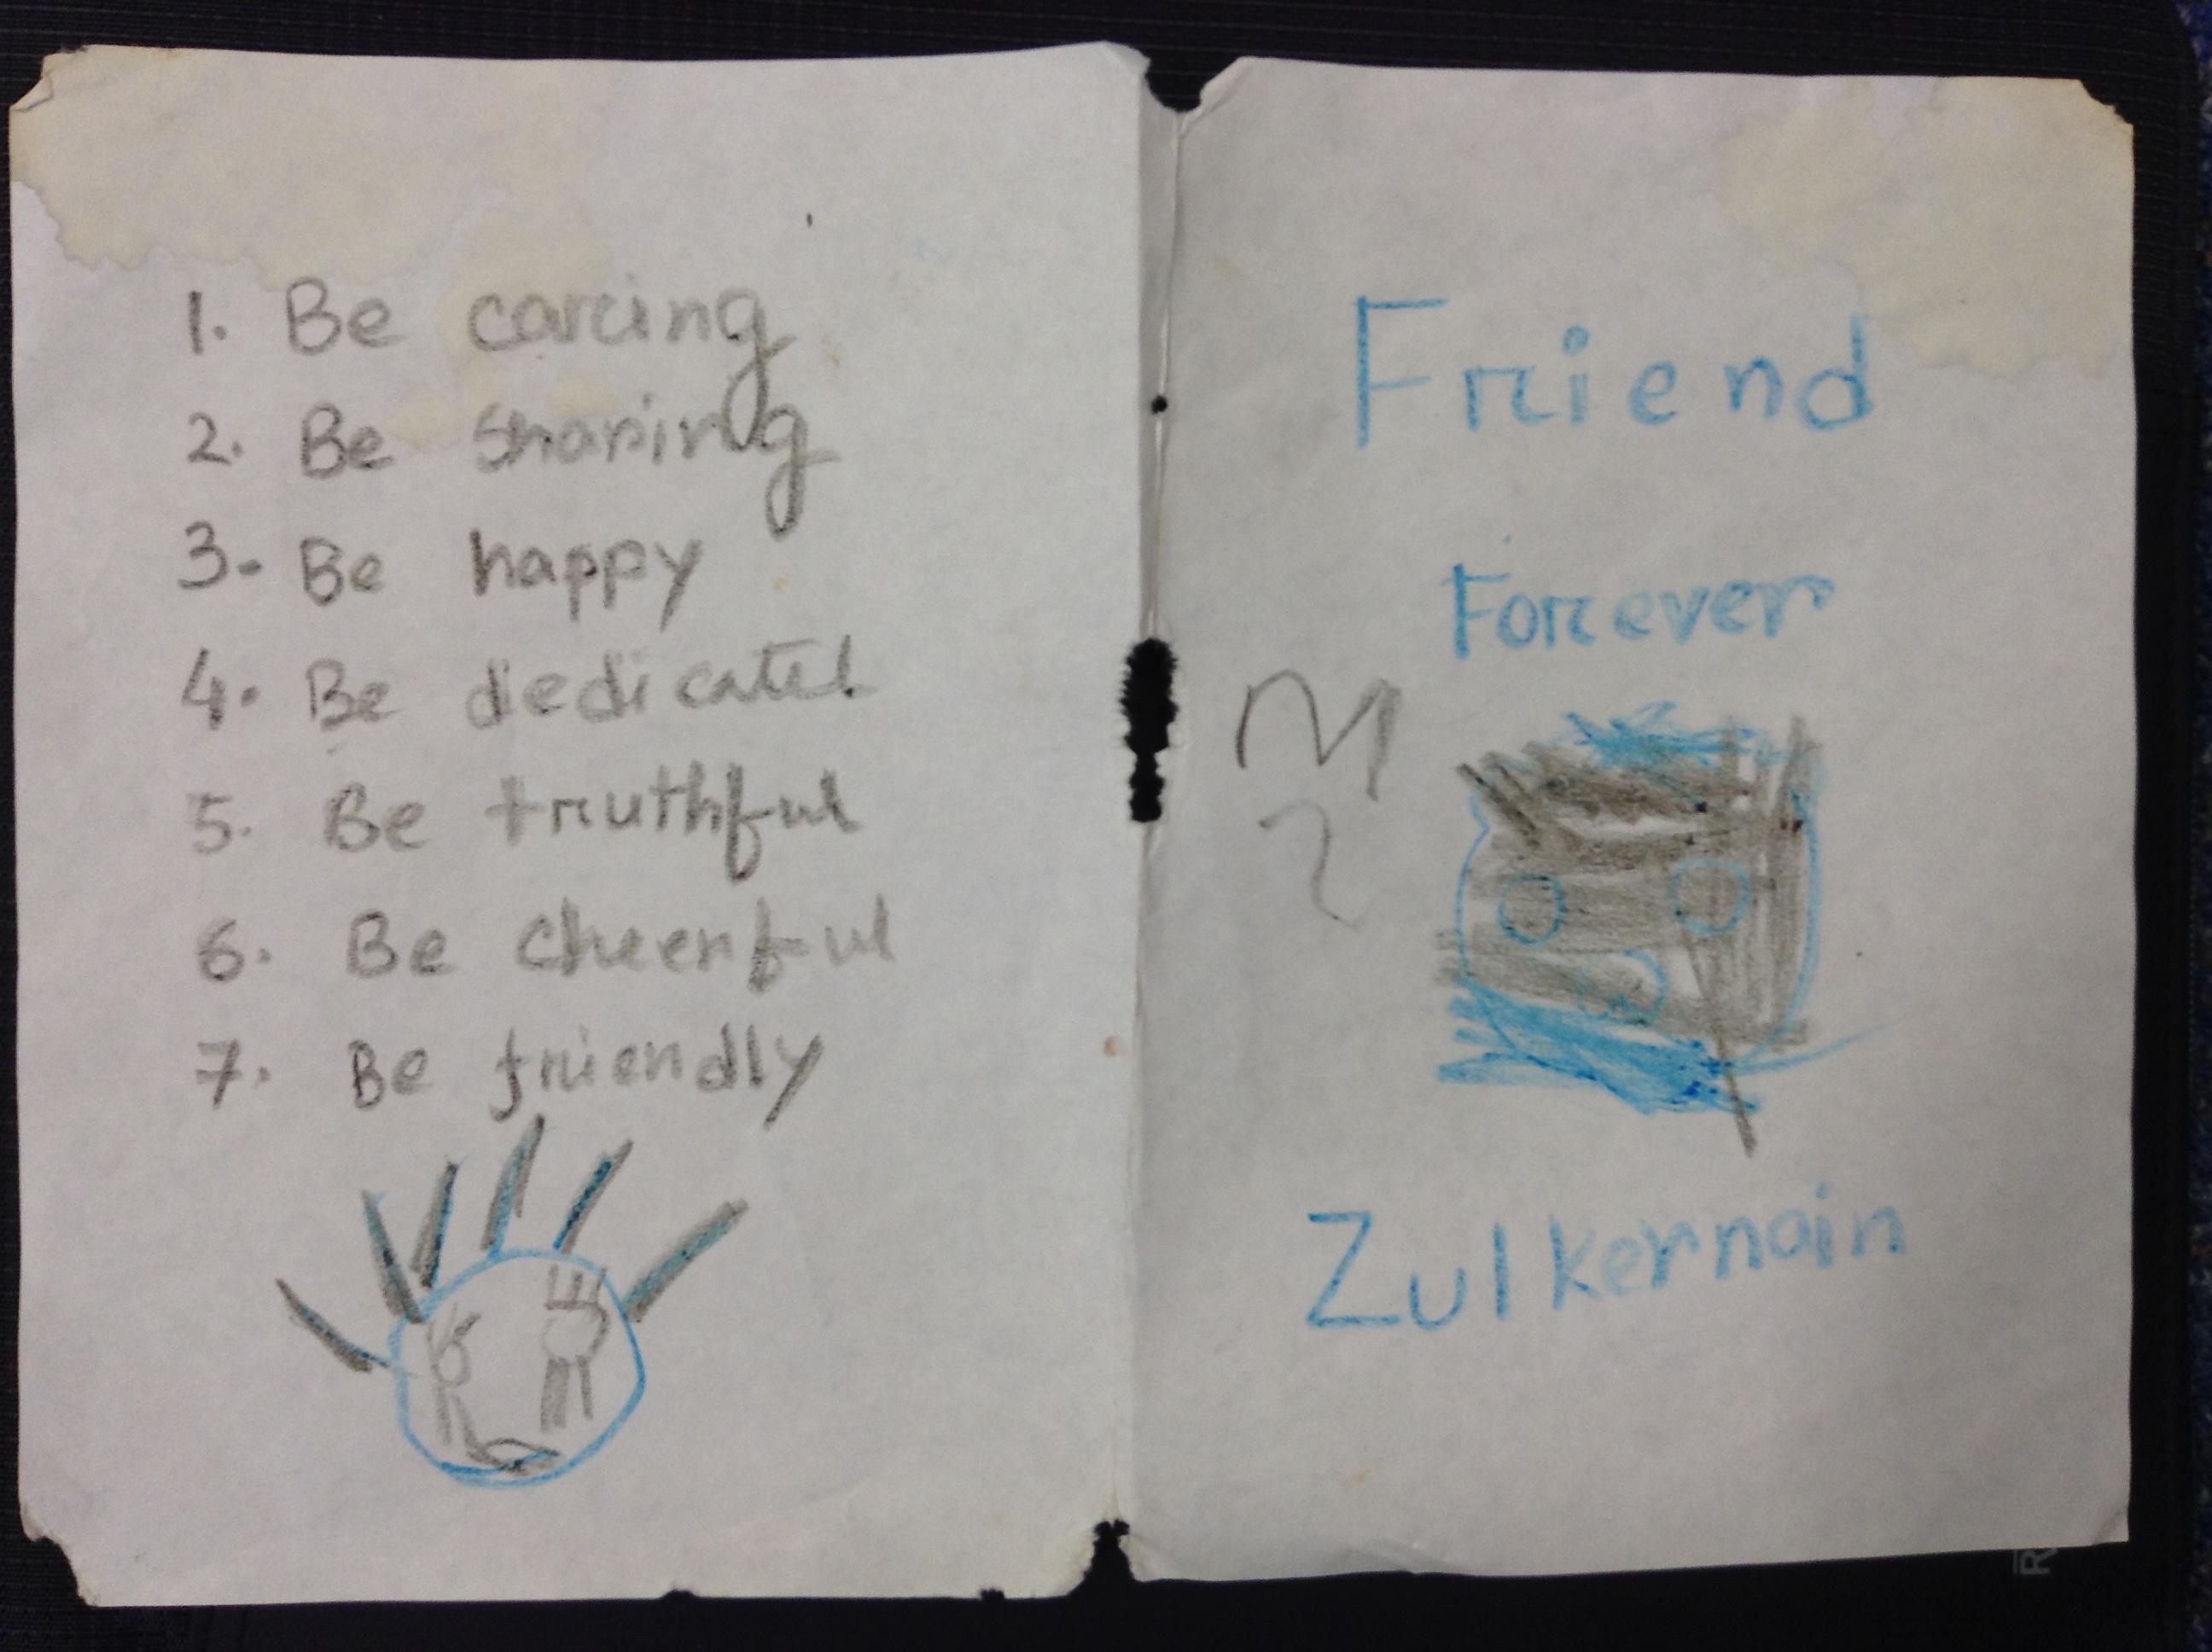 1. Be caring
2. Be sharing
3. Be happy
4. Be dedicated
5. Be truthful
6. Be cheerful
7. Be friendly
Friend
Forever
Zulkernain